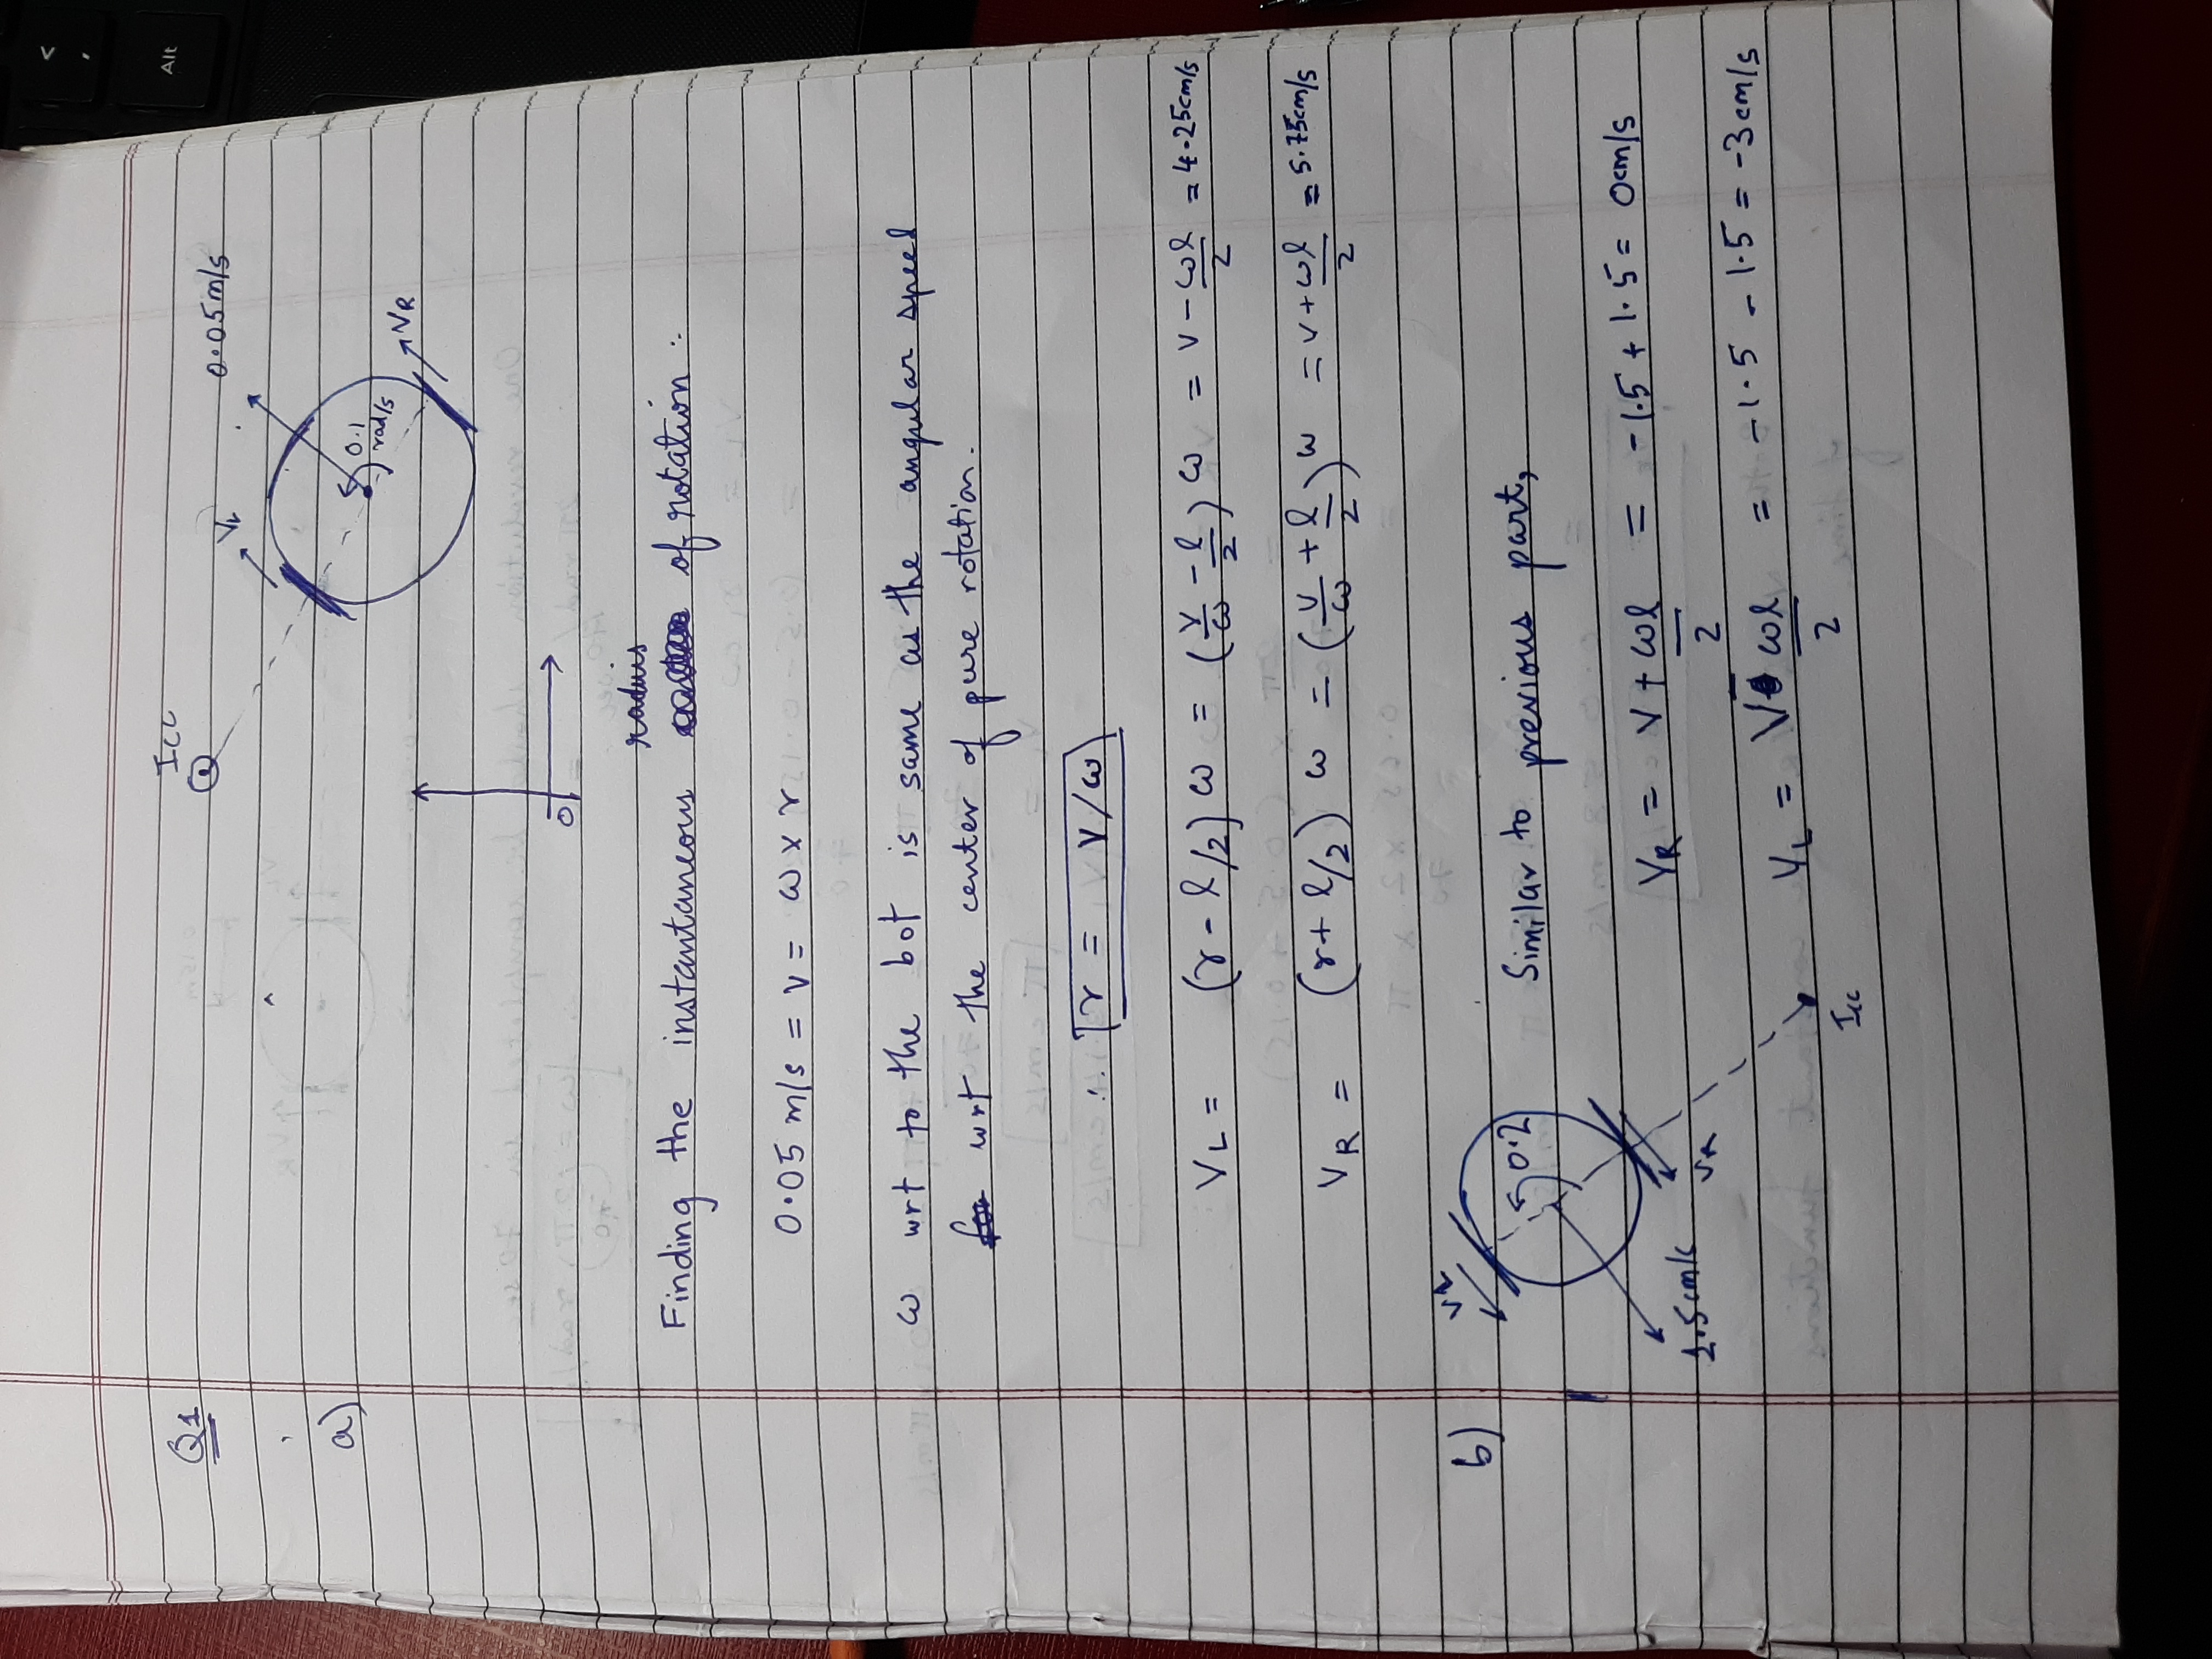 Q1
Icc
VL
0.05m/s
a)
0.1
rad/s
VR
O
radius
Finding the instantaneous of rotation :-
0.05 m/s = v = ω x r
ω wrt to the bot is same as the angular speed
for wrt the center of pure rotation.
∴ r = v/ω
VL = (r - l/2) ω = (v/ω - l/2) ω = v - ωl/2 = 4.25cm/s
VR = (r + l/2) ω = (v/ω + l/2) ω = v + ωl/2 = 5.75cm/s
b)
VL
0.2
Similar to previous part,
VR = V + ωl/2 = -1.5 + 1.5 = 0cm/s
1.5cm/s
VR
VL = V - ωl/2 = -1.5 - 1.5 = -3cm/s
Icc
<
,
Alt